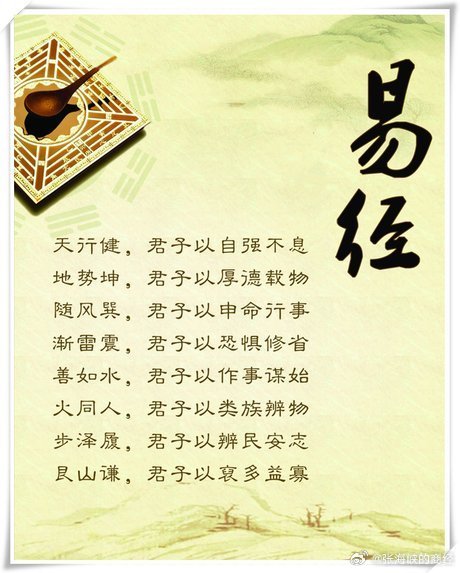 易经
天行健，君子以自强不息
地势坤，君子以厚德载物
随风巽，君子以申命行事
渐雷震，君子以恐惧修省
善如水，君子以作事谋始
火同人，君子以类族辨物
步泽履，君子以辨民安志
艮山谦，君子以裒多益寡
@张海峡的商经